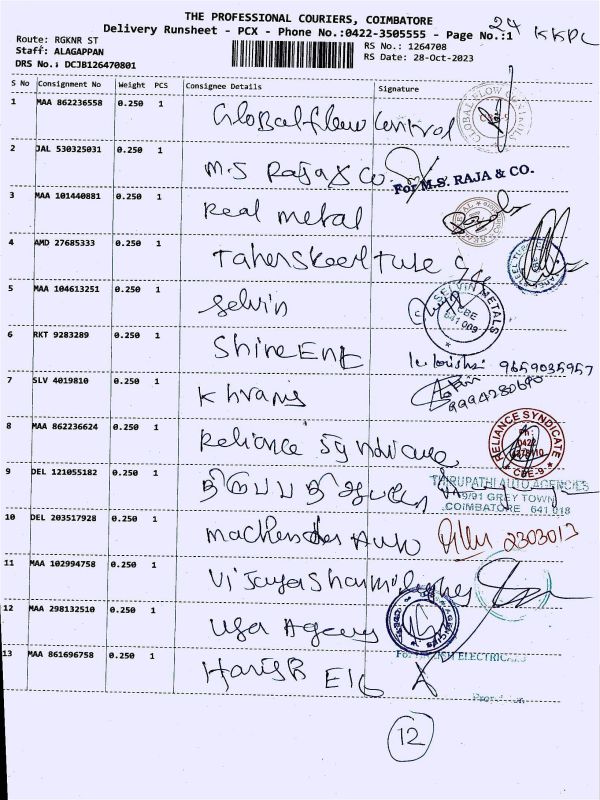 THE PROFESSIONAL COURIERS, COIMBATORE
Delivery Runsheet - PCX - Phone No.:0422-3505555 - Page No.:1
24 KKPC
Route: RGKNR ST
RS No.: 1264708
Staff: ALAGAPPAN
RS Date: 28-Oct-2023
DRS No.: DCJB126470801
S No Consignment No Weight PCS Consignee Details Signature
1 MAA 862236558 0.250 1 Global flow control
2 JAL 530325031 0.250 1 M.S Raja & Co For M.S. RAJA & CO.
3 MAA 101440881 0.250 1 Real metal
4 AMD 27685333 0.250 1 Taher Steel Tube
5 MAA 104613251 0.250 1 Selvin SELVIN METALS CBE 641 009
6 RKT 9283289 0.250 1 Shine Eng 9659035957
7 SLV 4019810 0.250 1 Khvanis
8 MAA 862236624 0.250 1 Reliance Syndicate RELIANCE SYNDICATE Ph: 0422 CBE-9
9 DEL 121055182 0.250 1 THIRUPATHI AUTO AGENCIES
9/91 GREY TOWN
COIMBATORE 641 018
10 DEL 203517928 0.250 1 Auto 2303013
11 MAA 102994758 0.250 1
12 MAA 298132510 0.250 1 Agency
13 MAA 861696758 0.250 1 ELECTRICALS
12